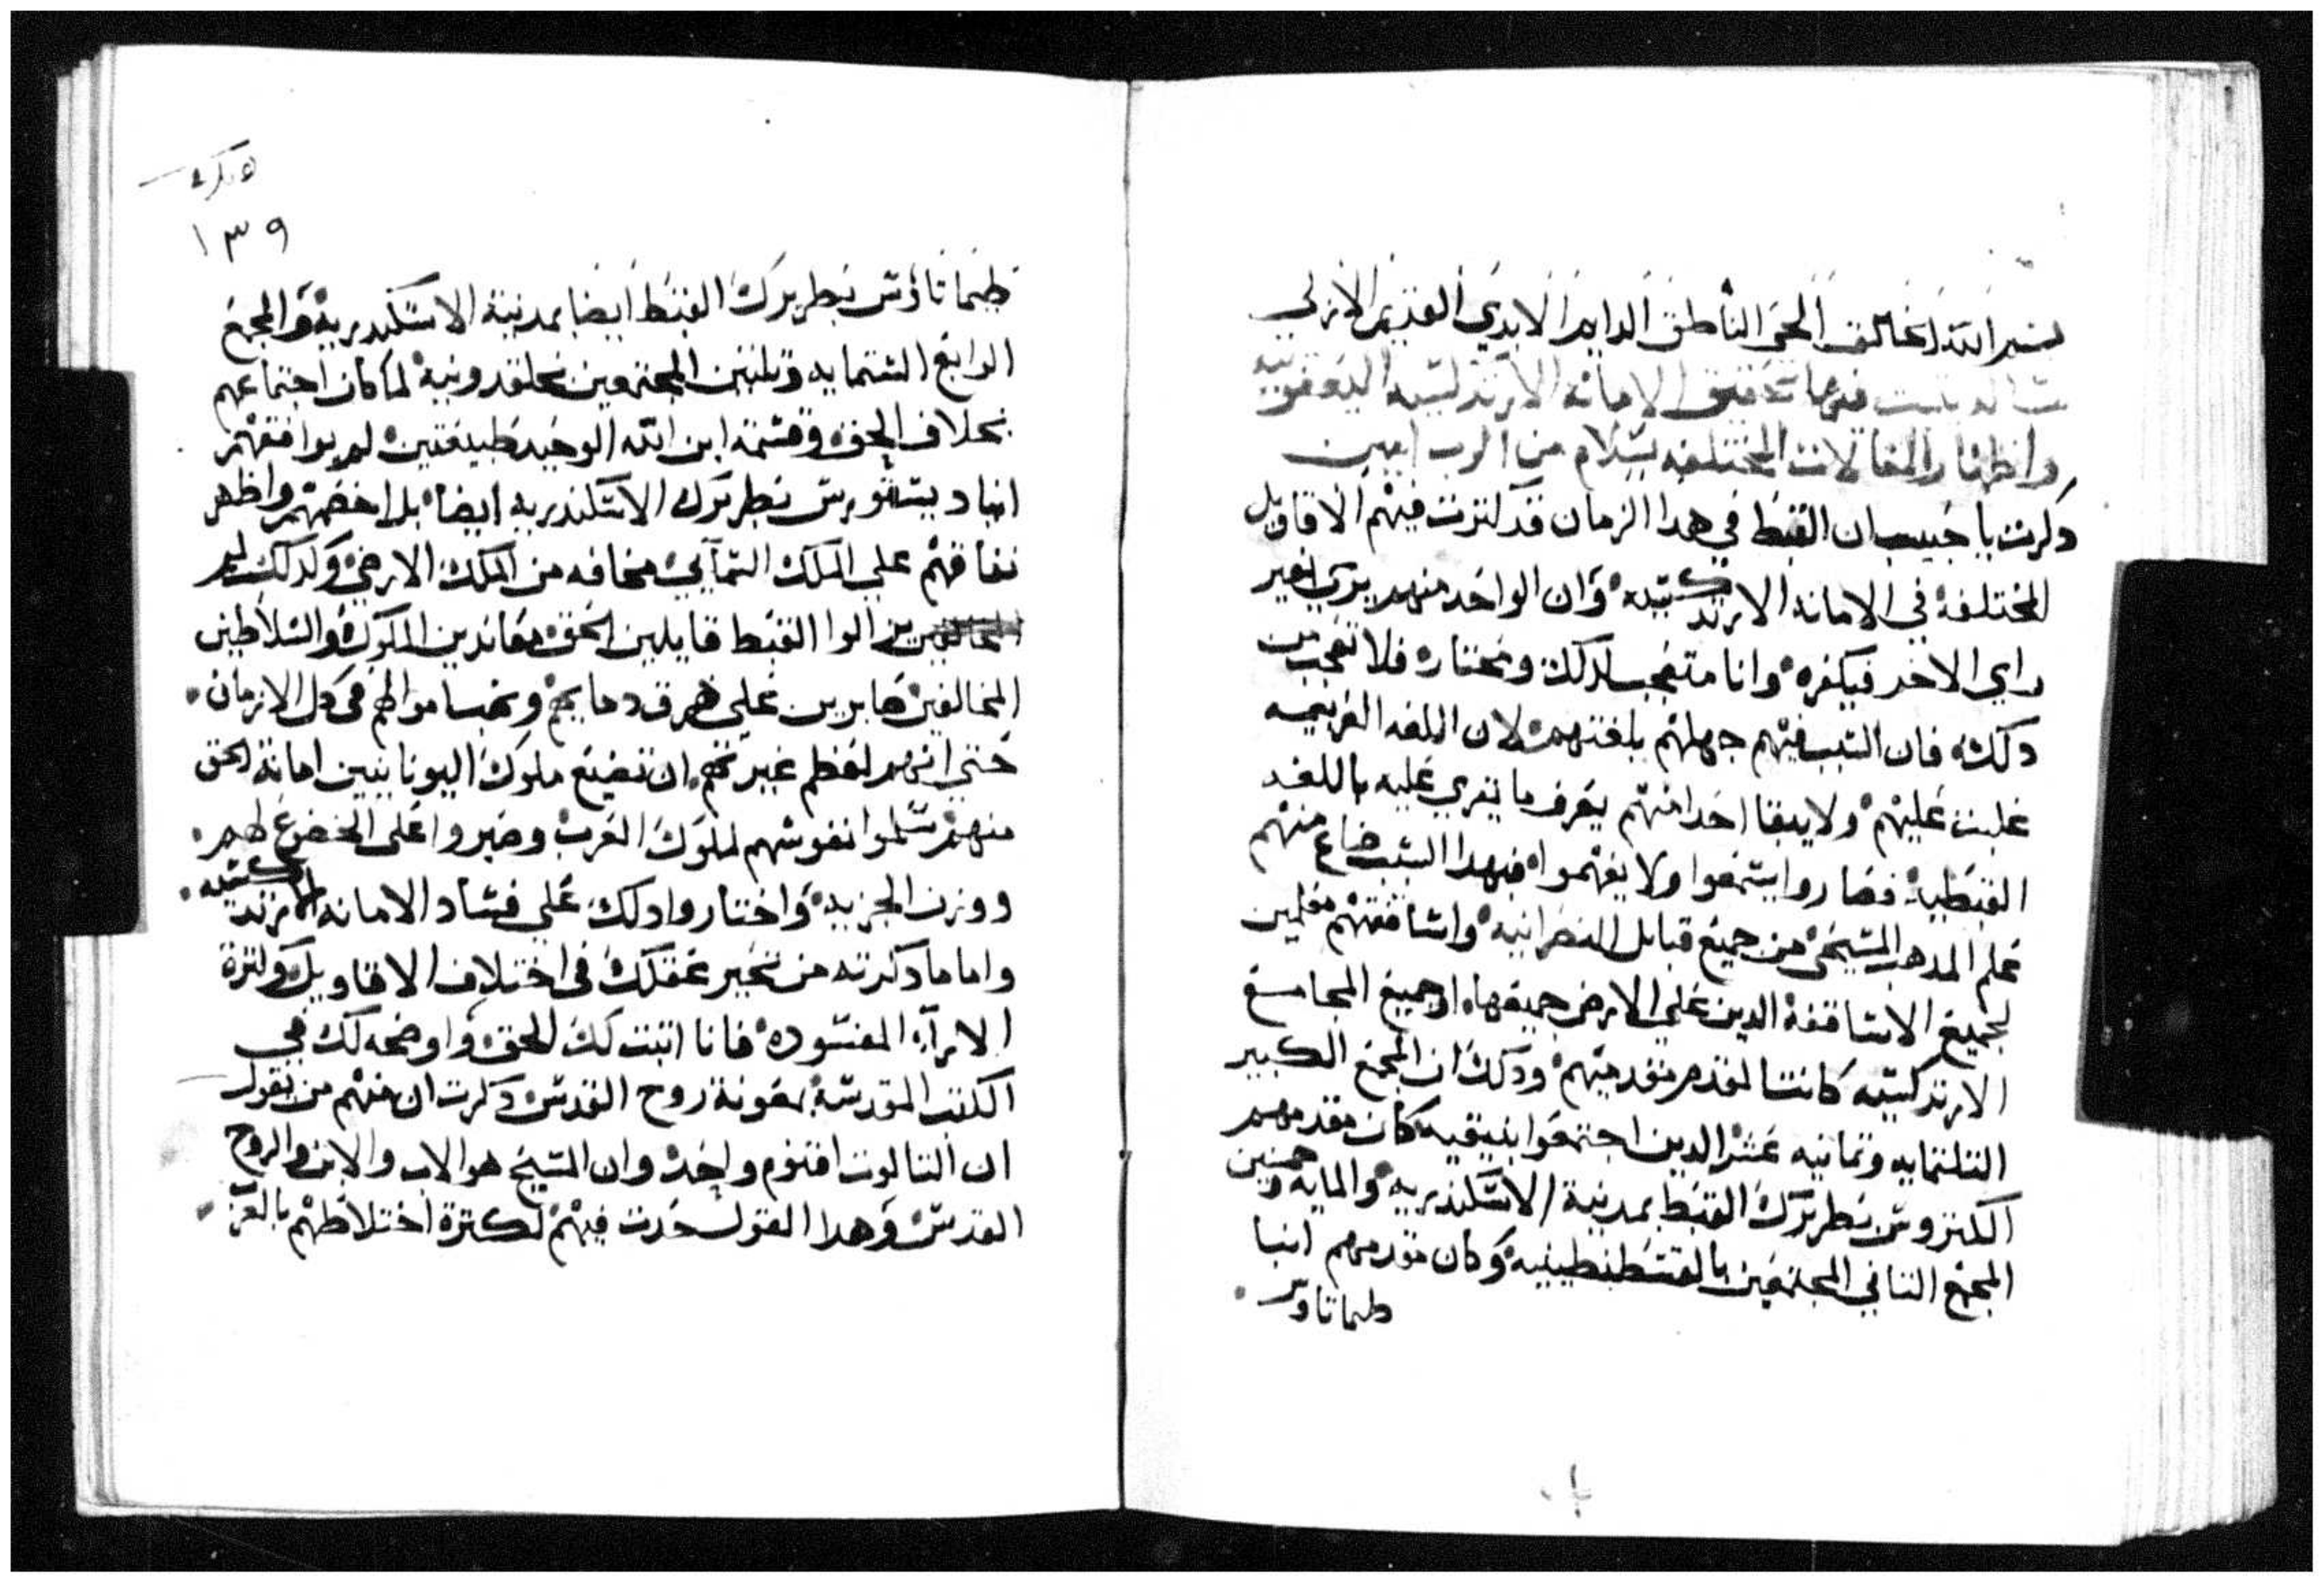 بسم الله الخالق الحي الناطق الدايم الابدي القديم الازلي
رسالة يثبت فيها تحقيق الامانه الارتدكسيه اليعقوبيه
واظهار المقالات المختلفه بسلام من الرب امين
دكرت يا حبيب ان القبط في هدا الزمان قد كترت فيهم الاقاويل
المختلفة في الامانه الارتدكسيه وان الواحد منهم يري بغير
راي الاخر فيكفره وانا متعجب لدلك ومحتار فلا تعجب من
دلك فان السبب فيهم جهلهم بلغتهم لان اللغه العربيه
غلبت عليهم ولا يبقا احدا منهم يعرف ما يقري عليه باللغه
القبطيه فصاروا يسمعوا ولا يفهموا فبهدا السبب ضاع منهم
علم المدهب المسيحي من جميع قبايل النصرانيه واساقفتهم معلمين
لجميع الاساقفة الدين علي الارض جميعها اد جميع المجامع
الارتدكسيه كانت المقدم مقدميهم ودلك ان المجمع الكبير
التلتمايه وتمانيه عشر الدين اجتمعوا بنيقيه كان مقدمهم
الكندروس بطريرك القبط بمدينة الاسكندريه والمايه وخمسين
المجمع التاني المجتمعين بالقسطنطينيه وكان مقدمهم انبا
طيماتاوس
١٣٩
طيماتاوس بطريرك القبط ايضا بمدينة الاسكندريه والمجمع
الرابع الستمايه وتلتين المجتمعين بخلقدونية لما كان اجتماعهم
بخلاف الحق وقسمة ابن الله الوحيد طبيعتين لم يوافقهم
انبا ديسقورس بطريرك الاسكندريه ايضا بل اخضهم واظهر
نفاقهم علي الملك السمآيي مخافه من الملك الارضي وكدلك لم
يزالوا القبط قايلين الحق معاندين الملوك والسلاطين
المخالفين صابرين علي هرق دمايهم ونهب اموالهم في كل الازمان
حتي انهم لعظم غيرتهم ان تضيع ملوك اليونانيين امانة الحق
منهم سلموا نفوسهم لملوك العرب وصبروا علي الخضوع لهم
ووزن الجزيه واختاروا دلك علي فساد الامانه الارتدكسيه
واما ما دكرته من تحير عقلك في اختلاف الاقاويل وكترة
الارآء المفسوده فانا اتبت لك الحق واوضحه لك في
الكتب المقدسة بمعونة روح القدس دكرت ان منهم من يقول
ان التالوت اقنوم واحد وان المسيح هو الاب والابن والروح
القدس وهدا القول حدت فيهم لكترة اختلاطهم بالغز